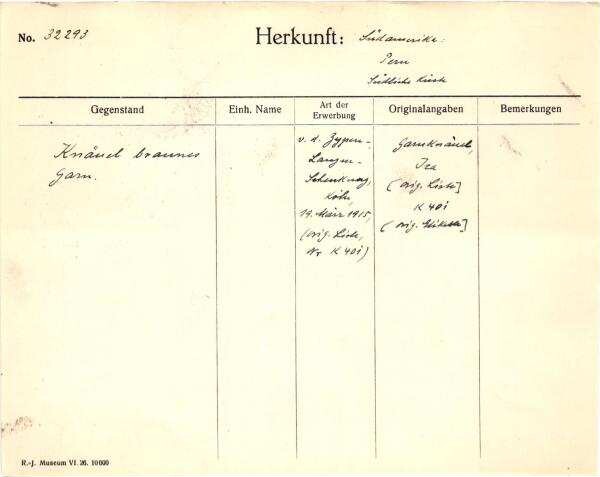 No. 32293
Herkunft: Südamerika.
Peru
Südliche Küste
Gegenstand
Einh. Name
Art der
Erwerbung
Originalangaben
Bemerkungen
Knäuel braunes
Garn.
v. d. Zypen-
Langen-
Schenkung,
Köln,
19. März 1915,
(orig. Liste,
Nr K 40i)
Garnknäuel,
Ica
(orig. Liste]
K 40i
(orig. Etikette]
R.-J. Museum VI. 26. 10000